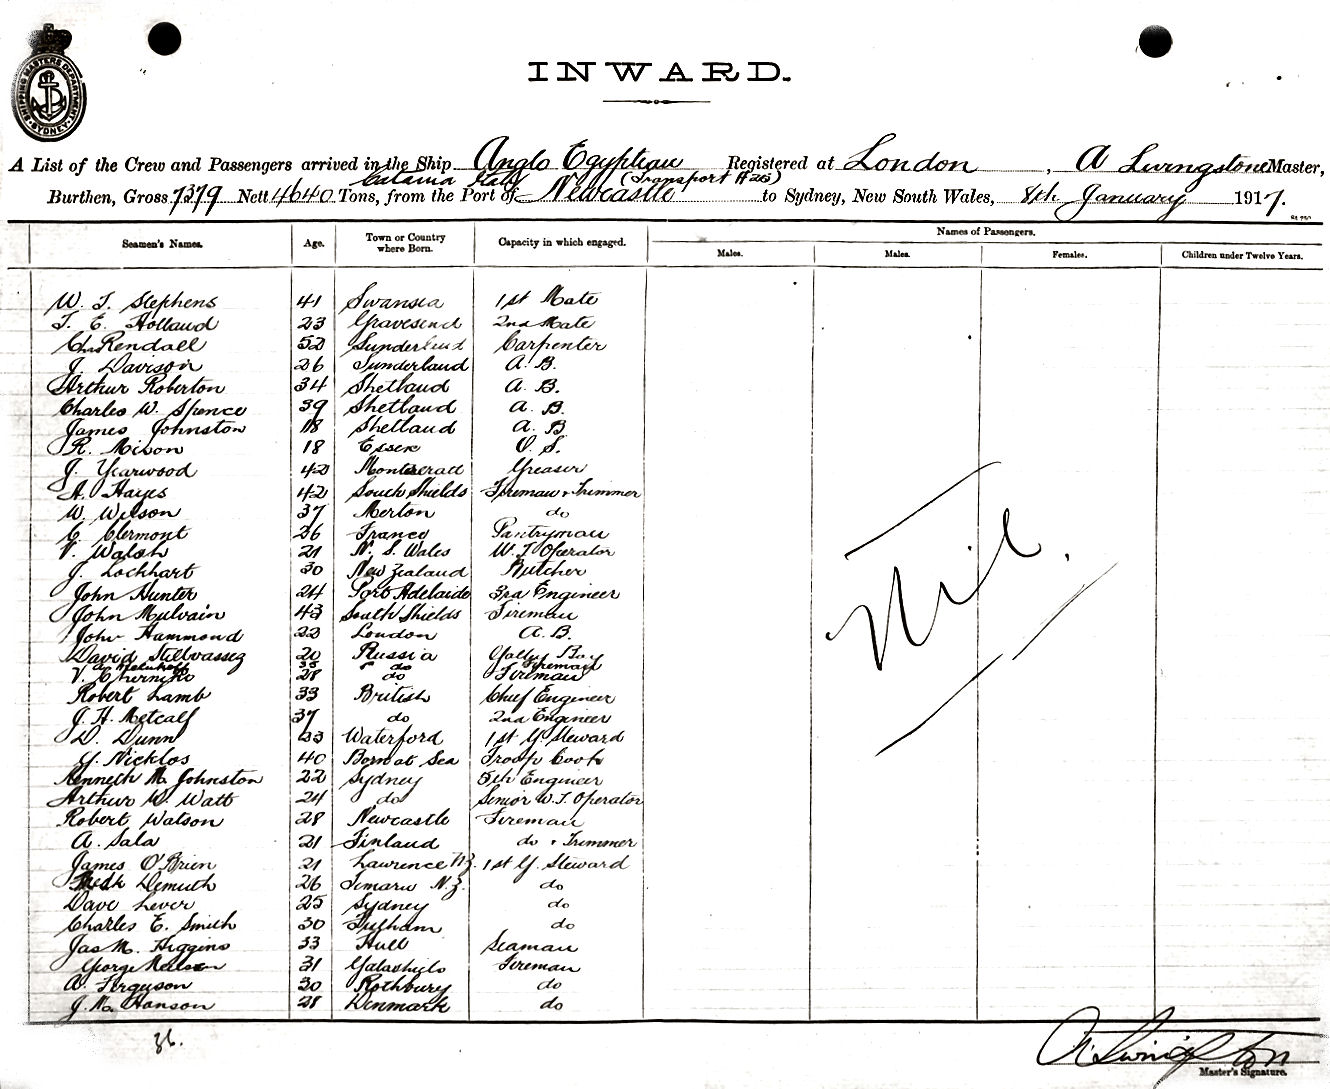 SHIPPING MASTERS DEPARTMENT SYDNEY
INWARD.
A List of the Crew and Passengers arrived in the Ship Anglo Egyptian Registered at London, A Livingstone Master,
Catania Italy (Transport A25)
Burthen, Gross 7379 Nett 4640 Tons, from the Port of Newcastle to Sydney, New South Wales, 8th January 1917.
Seamen's Names. Age. Town or Country where Born. Capacity in which engaged. Names of Passengers.
Males. Males. Females. Children under Twelve Years.
W. T. Stephens 41 Swansea 1st Mate
T. E. Holland 23 Gravesend 2nd Mate
Chas Rendall 52 Sunderland Carpenter
J. Davison 26 Sunderland A. B.
Arthur Roberton 34 Shetland A. B.
Charles W. Spence 39 Shetland A. B.
James Johnston 18 Shetland A. B
R. Mixon 18 Essex O. S.
J. Yearwood 42 Montseratt Greaser
A. Hayes 42 South Shields Fireman & Trimmer
W. Wilson 37 Merton do
C. Clermont 26 France Pantryman
V. Walsh 21 N. S. Wales W. T. Operator
J. Lockhart 30 New Zealand Butcher
John Hunter 24 Port Adelaide 3rd Engineer
John Mulvain 43 South Shields Fireman
John Hammond 22 London A. B.
David 20 Russia Galley Boy
35 do Fireman
V. Cherniko 28 do Fireman
Robert Lamb 33 British Chief Engineer
J. H. Metcalf 37 do 2nd Engineer
D. Dunn 33 Waterford 1st G. Steward
Y. Nicklos 40 Born at Sea Troop Cook
Kenneth M. Johnston 22 Sydney 5th Engineer
Arthur W. Watt 24 do Senior W. T. Operator
Robert Watson 28 Newcastle Fireman
A. Sala 21 Finland do & Trimmer
James O'Brien 21 Lawrence N.Z. 1st G. Steward
Demuth 26 Timaru N.Z. do
Dave Lever 25 Sydney do
Charles E. Smith 30 Fulham do
Jas M. Higgins 33 Hull Seaman
George 31 Galashiels Fireman
A. Ferguson 30 Rothbury do
J. M. Hanson 28 Denmark do
Nil.
36.
A. Livingston
Master's Signature.